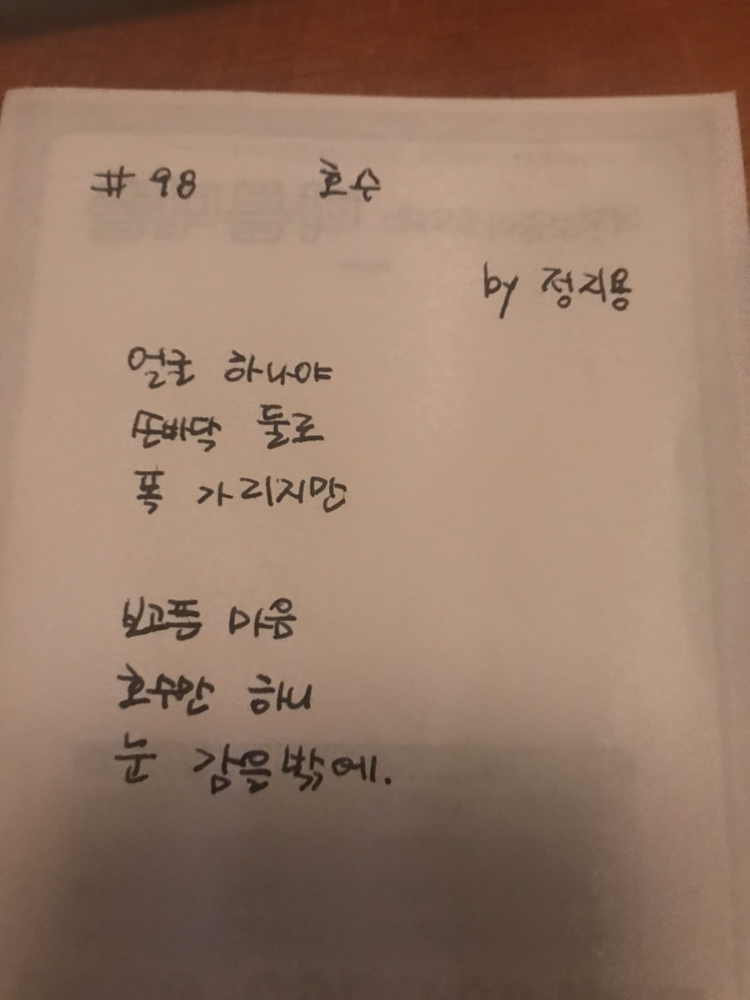 #98 호수
by 정지용
얼굴 하나야
손바닥 둘로
폭 가리지만
보고픈 마음
호수만 하니
눈 감을밖에.